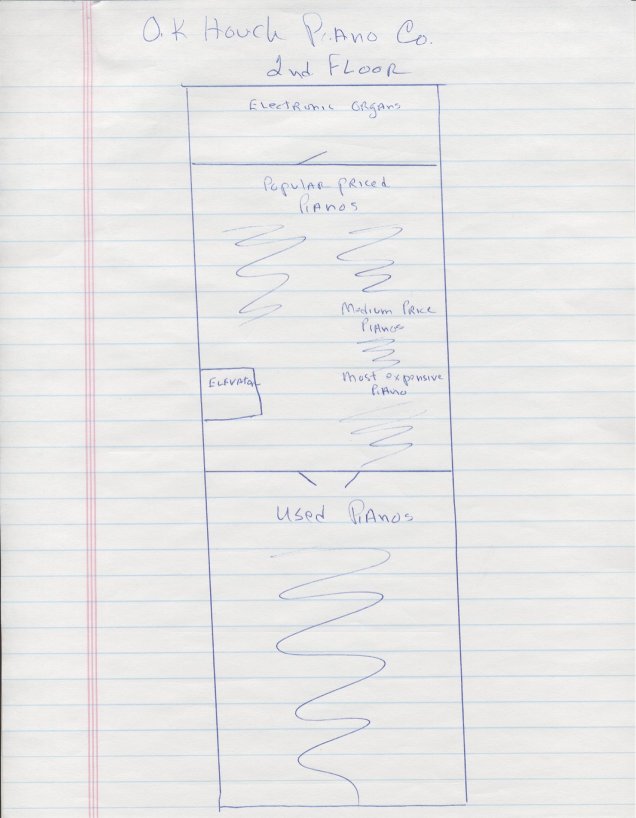 O.K Houck Piano Co.
2nd. Floor
Electronic Organs
Popular priced
Pianos
Medium Price
Pianos
Elevator
Most expensive
Piano
Used Pianos